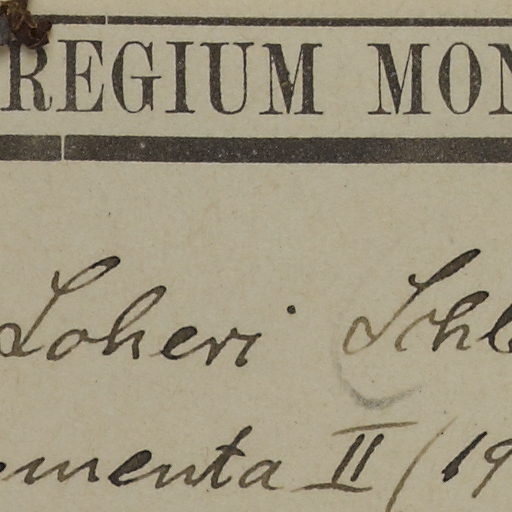 REGIUM MON
Loheri Schl
menta II (19